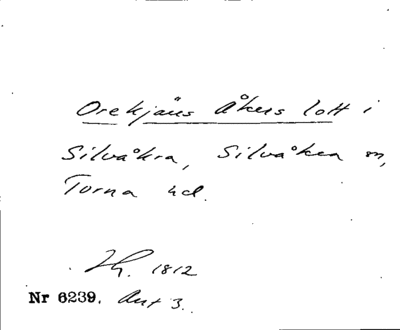 Orekjäns Åkers lott i
Silvåkra, Silvåkra sn,
Torna hd.
Th. 1812
Nr 6239. Ant 3.